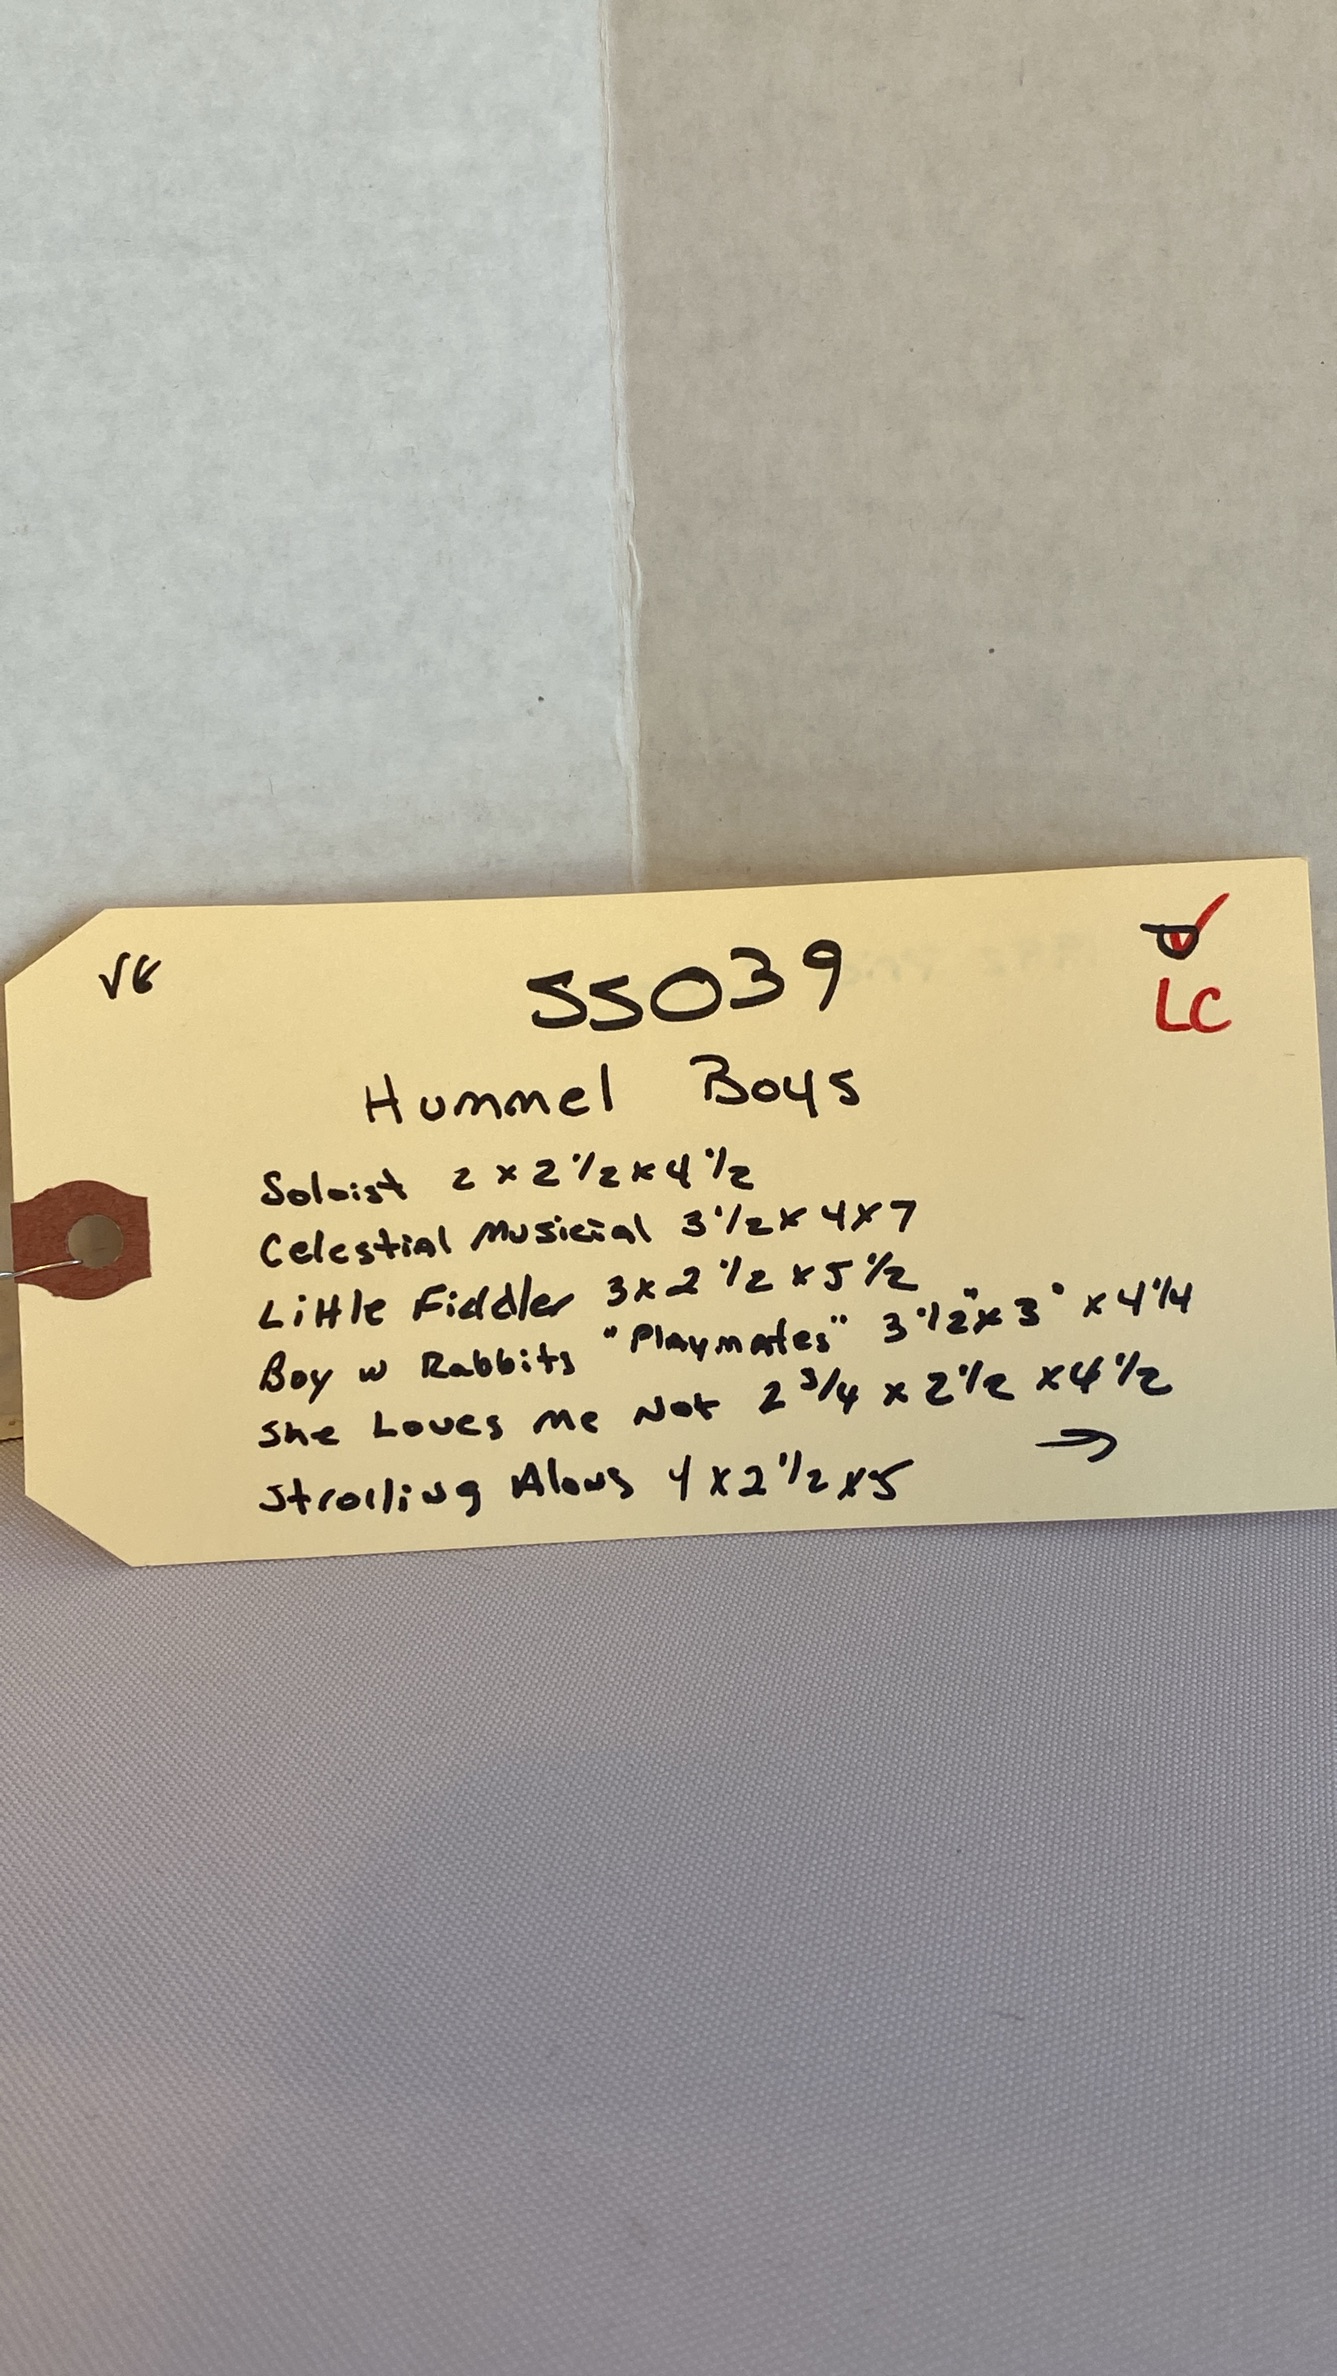 √6
55039
LC
Hummel Boys
Soloist 2 x 2 1/2 x 4 1/2
Celestial Musicial 3 1/2 x 4 x 7
Little Fiddler 3 x 2 1/2 x 5 1/2
Boy w Rabbits "Playmates" 3 1/2" x 3" x 4 1/4
She Loves Me Not 2 3/4 x 2 1/2 x 4 1/2
Strolling Along 4 x 2 1/2 x 5 →